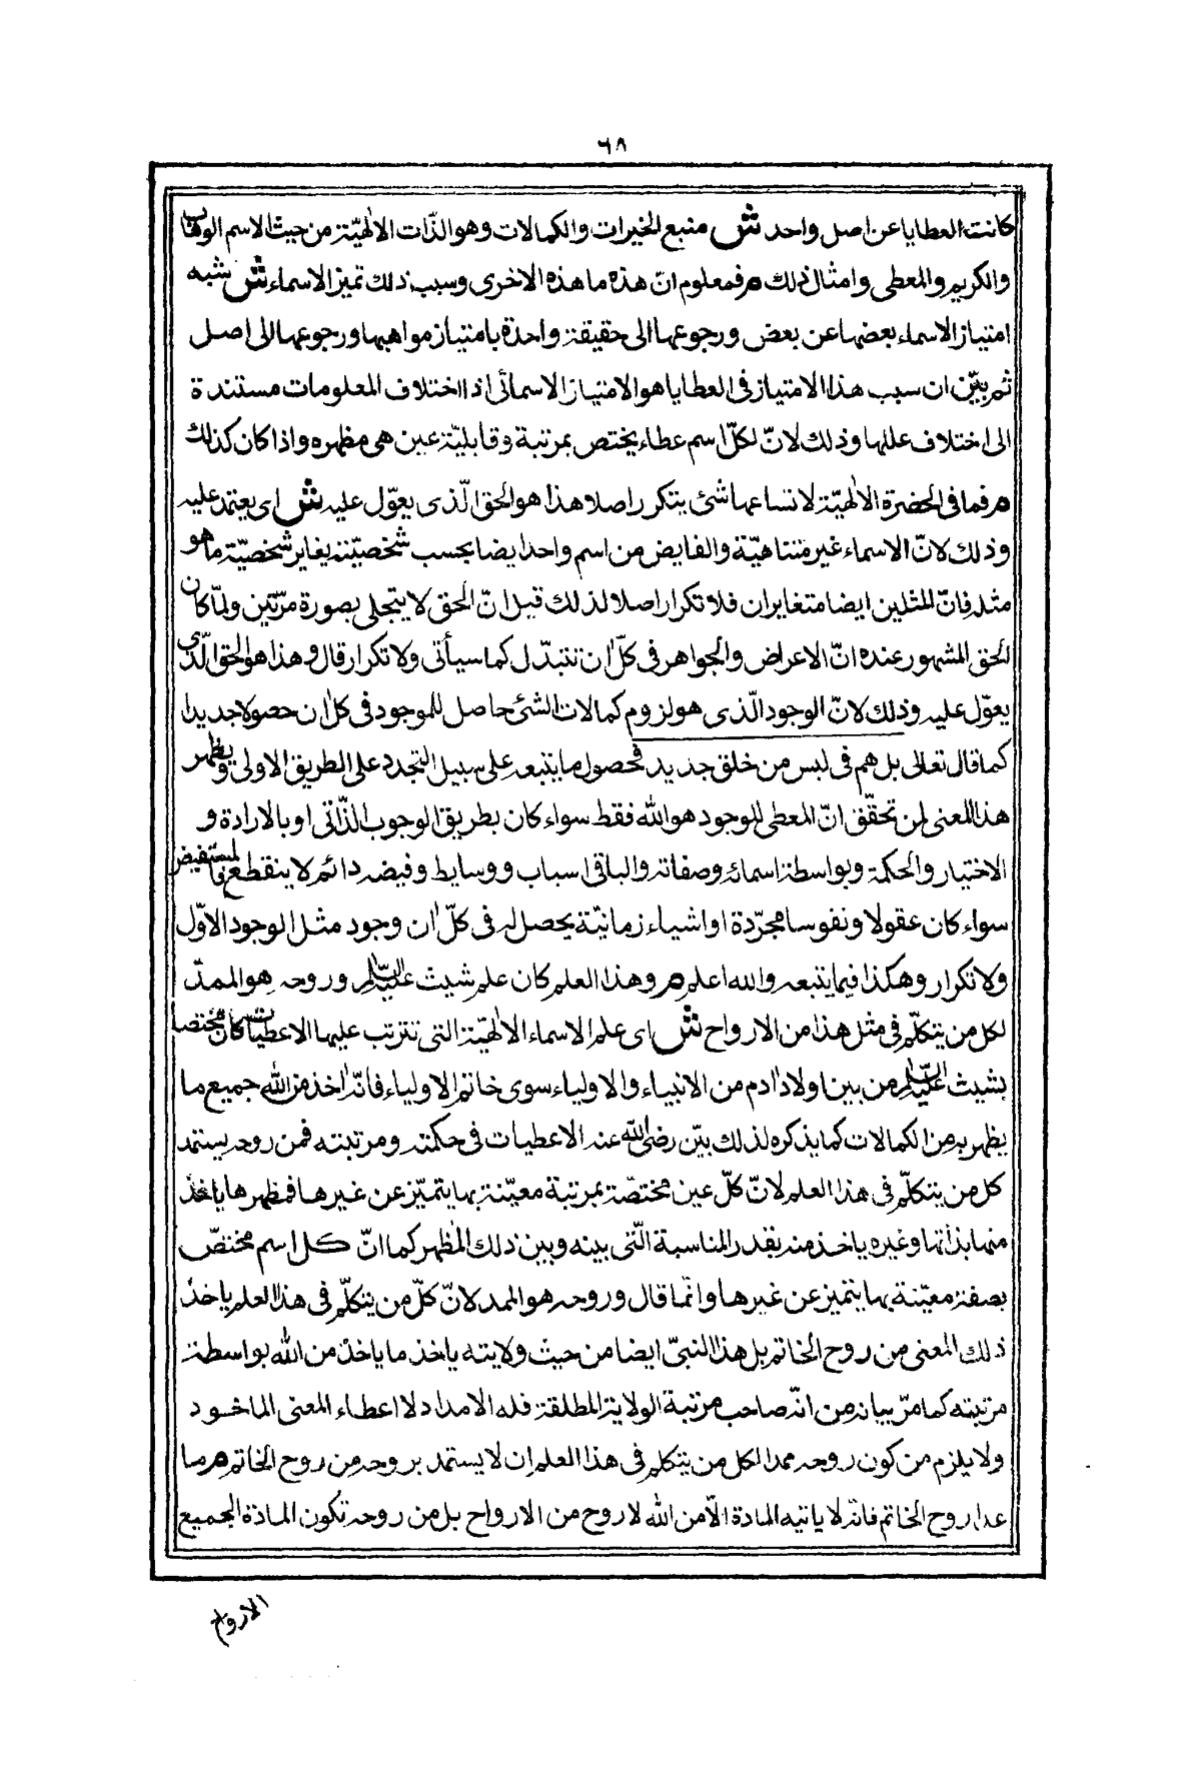 ٦٨
كانت العطايا عن اصل واحد ش منبع الخيرات والكمالات وهو الذّات الالٰهيّة من حيث الاسم الوهّاب
والكريم والمعطى وامثال ذلك م فمعلوم انّ هذه ما هذه الاخرى وسبب ذلك تميز الاسماء ش شبه
امتياز الاسماء بعضها عن بعض ورجوعها الى حقيقة واحدة بامتياز مواهبها ورجوعها الى اصل
ثم بيّن ان سبب هذا الامتياز فى العطايا هو الامتياز الاسمائى اذ اختلاف المعلومات مستندة
الى اختلاف عللها وذلك لانّ لكلّ اسم عطاء يختص بمرتبة وقابليّة عين هى مظهره واذا كان كذلك
م فما فى الحضرة الالٰهيّة لاتساعها شئ يتكرر اصلا هذا هو الحق الّذى يعوّل عليه ش اى يعتمد عليه
وذلك لانّ الاسماء غير متناهيّة والفايض من اسم واحد ايضا بحسب شخصيّته يغاير شخصيّة ما هو
مثله فانّ المثلين ايضا متغايران فلا تكرار اصلا لذلك قيل انّ الحق لا يتجلى بصورة مرّتين ولمّا كان
الحق المشهور عنده انّ الاعراض والجواهر فى كلّ اٰن تتبدّل كما سيأتى ولا تكرار قال وهذا هو الحق الّذى
يعوّل عليه وذلك لانّ الوجود الّذى هو لزوم كمالات الشئ حاصل للموجود فى كل اٰن حصولا جديدا
كما قال تعالى بل هم فى لبس من خلق جديد فحصول ما يتبعه على سبيل التجدد على الطريق الاولى ويظهر
هذا المعنى لمن تحقّق انّ المعطى للوجود هو الله فقط سواء كان بطريق الوجوب الذّاتى او بالارادة و
الاختيار والحكمة وبواسطة اسمائه وصفاته والباقى اسباب ووسايط وفيضه دائم لا ينقطع فالمستفيض
سواء كان عقولا ونفوسا مجرّدة او اشياء زمانيّة يحصل له فى كلّ اٰن وجود مثل الوجود الاوّل
ولا تكرار وهكذا فيما يتبعه والله اعلم م وهذا العلم كان علم شيث عليه السّلام وروحه هو الممدّ
لكل من يتكلّم فى مثل هذا من الارواح ش اى علم الاسماء الالٰهيّة التى تترتب عليها الاعطيات كان مختصا
بشيث عليه السّلام من بين اولاد اٰدم من الانبياء والاولياء سوى خاتم الاولياء فانّه اٰخذ من الله جميع ما
يظهر به من الكمالات كما يذكره لذلك بيّن رضى الله عنه الاعطيات فى حكمته ومرتبته فمن روحه يستمد
كل من يتكلّم فى هذا العلم لانّ كلّ عين مختصّة بمرتبة معيّنة بها يتميّز عن غيرها فمظهرها ياخذ
منها بذاتها وغيره ياخذ منه بقدر المناسبة الّتى بينه وبين ذلك المظهر كما انّ كل اسم مختصّ
بصفة معيّنة بها يتميز عن غيرها وانّما قال وروحه هو الممد لانّ كلّ من يتكلّم فى هذا العلم ياخذ
ذلك المعنى من روح الخاتم بل هذا النبىّ ايضا من حيث ولايته ياخذ ما ياخذ من الله بواسطة
مرتبته كما مرّ بيانه من انّه صاحب مرتبة الولاية المطلقة فله الامداد لا اعطاء المعنى الماخوذ
ولا يلزم من كون روحه ممدا لكل من يتكلم فى هذا العلم ان لا يستمد بروحه من روح الخاتم م ما
عدا روح الخاتم فانّه لا ياتيه المادة الّا من الله لا روح من الارواح بل من روحه تكون المادة لجميع
الارواح